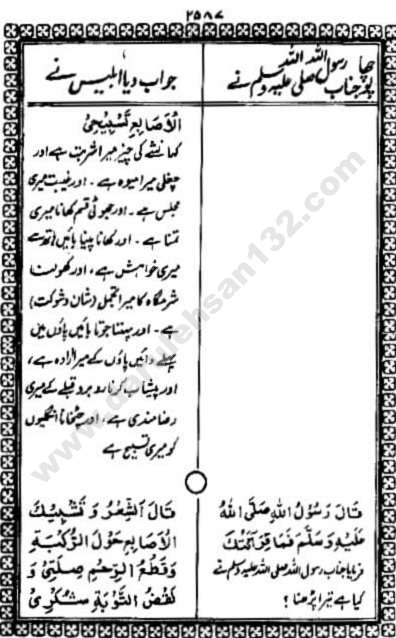 ۲۵۸۷
پوچھا جناب رسول اللہ صلی اللہ علیہ وسلم نے
جواب دیا ابلیس نے
الْاَصَابِعِ تَسْبِيْحِیْ
کہ نشے کی چیز میرا شربت ہے اور
چغلی میرا میوہ ہے ۔ اور غیبت میری
مجلس ہے ۔ اور جھوٹی قسم کھانا میری
تمنا ہے ۔ اور کھانا پینا بائیں ہاتھ سے
میری خواہش ہے، اور کھولنا
شرمگاہ کا میرا تجمل (شان و شوکت)
ہے ۔ اور پہننا جوتا بائیں پاؤں میں
پہلے دائیں پاؤں کے میرا ارادہ ہے،
اور پیشاب کرنا روبرو قبلے کے میری
رضامندی ہے ، اور چٹخانا انگلیوں
کو میری تسبیح ہے
قَالَ رَسُوْلُ اللهِ صَلَّى اللهُ
عَلَيْهِ وَسَلَّمَ فَمَا قِرَآئَتُكَ
فرمایا جناب رسول اللہ صلی اللہ علیہ وسلم نے
کیا ہے تیرا پڑھنا ؟
قَالَ الشِّعْرُ وَ تَشْبِيْكُ
الْاَصَابِعِ حَوْلَ الرُّكْبَةِ
وَقَطْعُ الرَّحِمِ صِلَتِیْ وَ
نَقْضُ التَّوْبَةِ شُكْرِیْ
www.darulehsan132.com